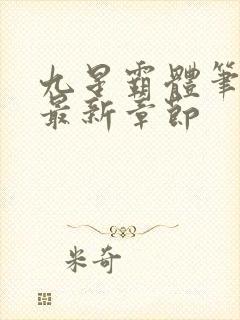 九星霸體筆
最新章節
米奇